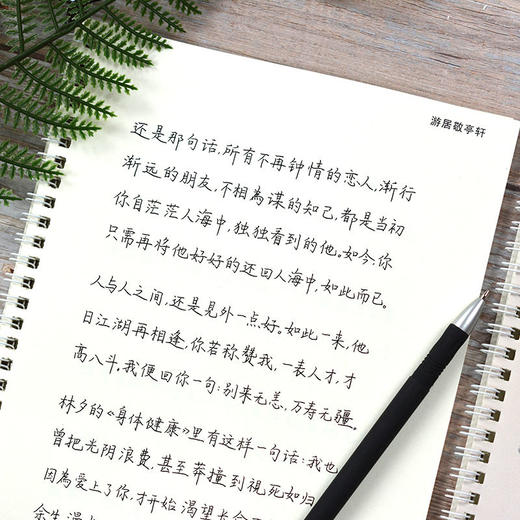 游居敬亭轩
还是那句话,所有不再钟情的恋人,渐行
渐远的朋友,不相為谋的知己,都是当初
你自茫茫人海中,独独看到的他。如今,你
只需再将他好好的还回人海中,如此而已。
人与人之间,还是見外一点好。如此一来,他
日江湖再相逢,你若称赞我,一表人才,才
高八斗。我便回你一句:别来无恙,万寿无疆。
林夕的《身体健康》里有这样一句话:我也
曾把光阴浪费,甚至莽撞到視死如归
因為爱上了你,才开始渴望长命
余生漫